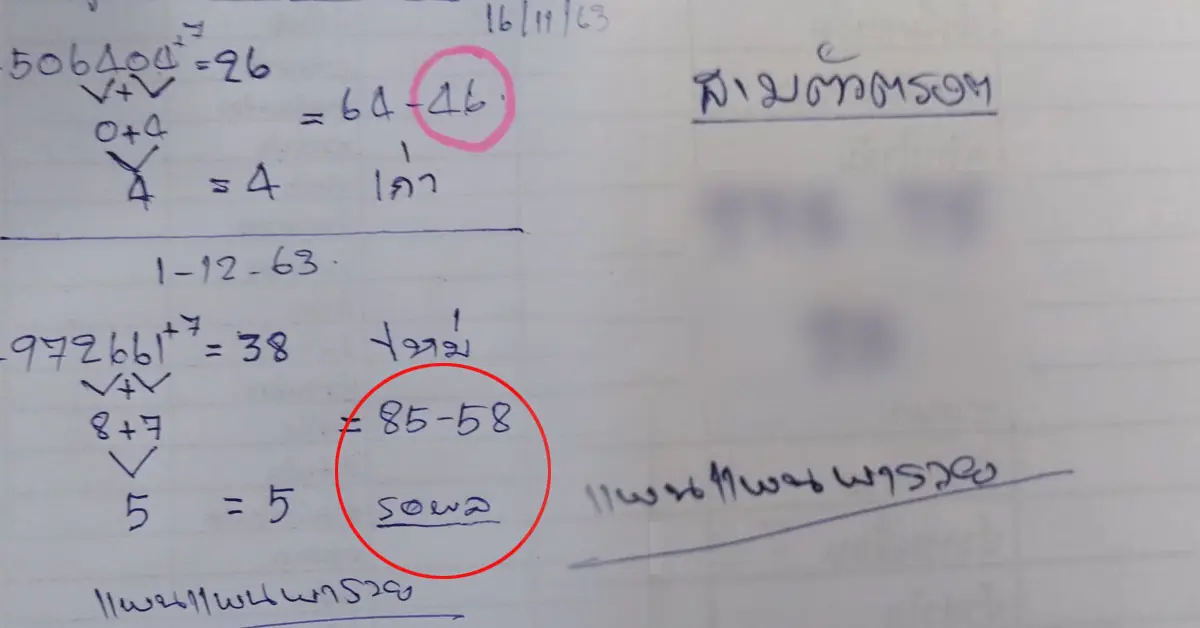 16/11/63
506404+7 = 26
+
0+4
= 64-46
4 = 4 เก่า
1-12-63
972661+7 = 38 ใหม่
+
8+7
= 85-58
5 = 5 รอผล
แพนแพนพารวย
สามตัวตรงๆ
แพนแพนพารวย